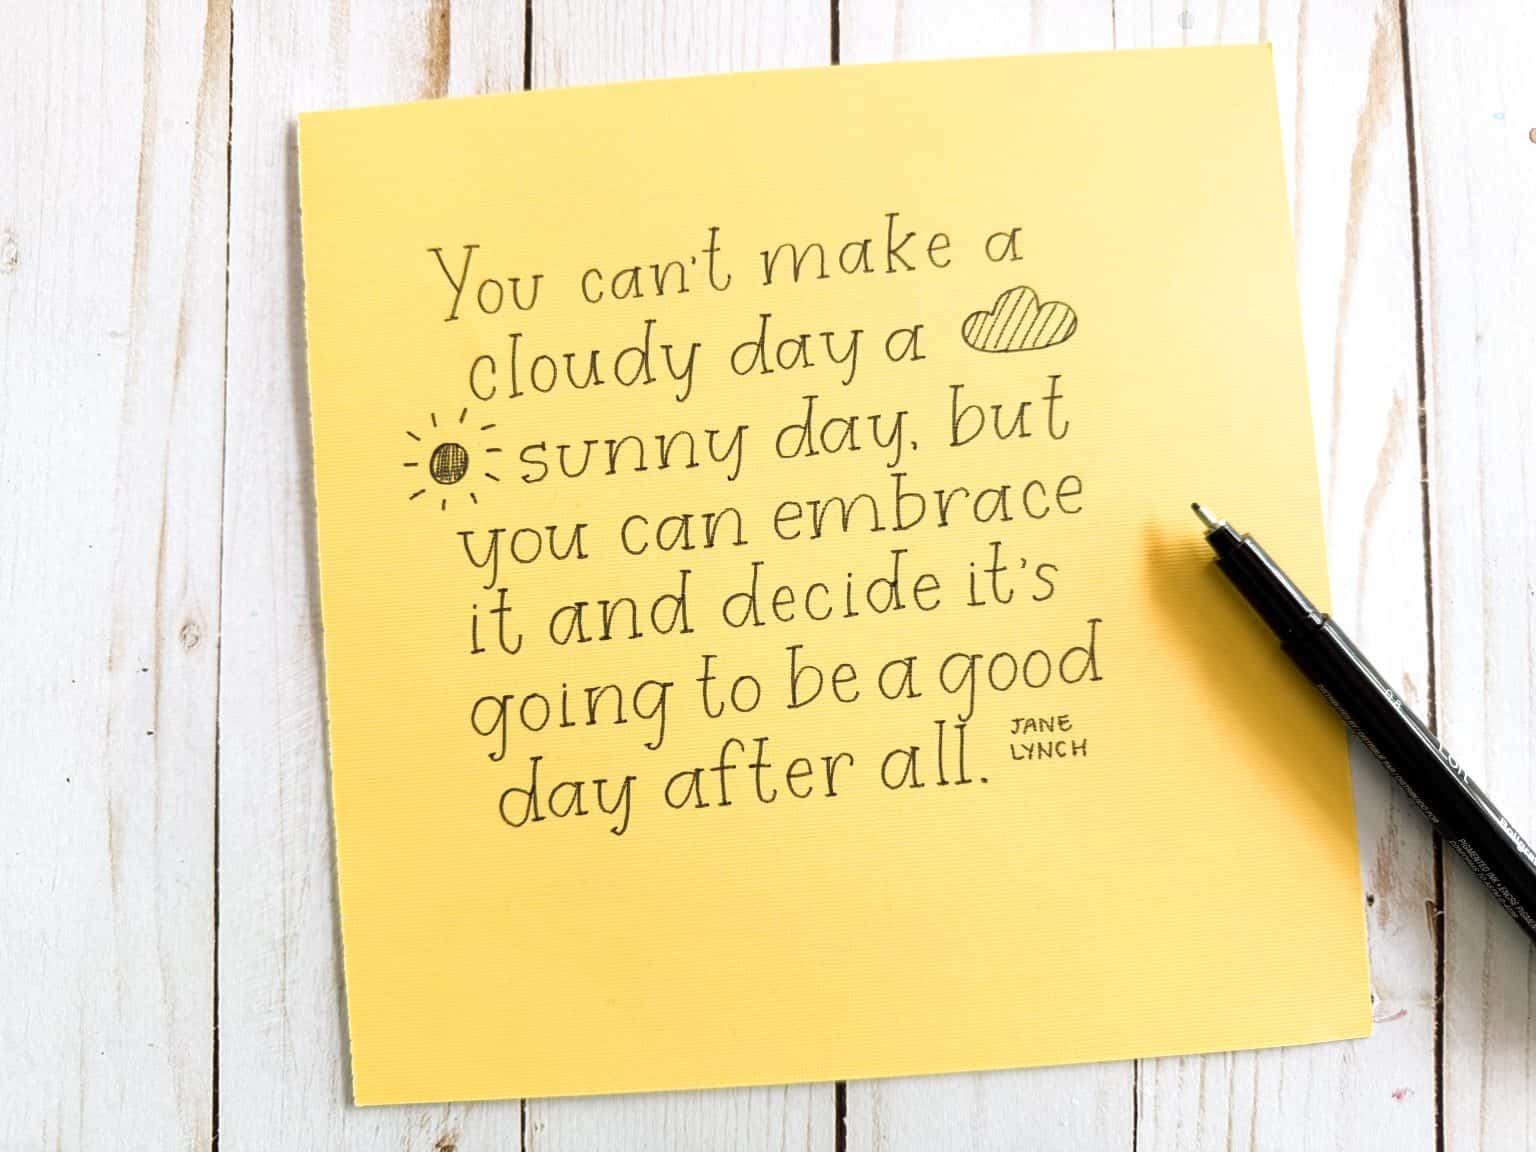 You can't make a
cloudy day a
sunny day, but
you can embrace
it and decide it's
going to be a good
day after all.
JANE
LYNCH
0.8
Loft
PIGMENTED INK • ENCRE